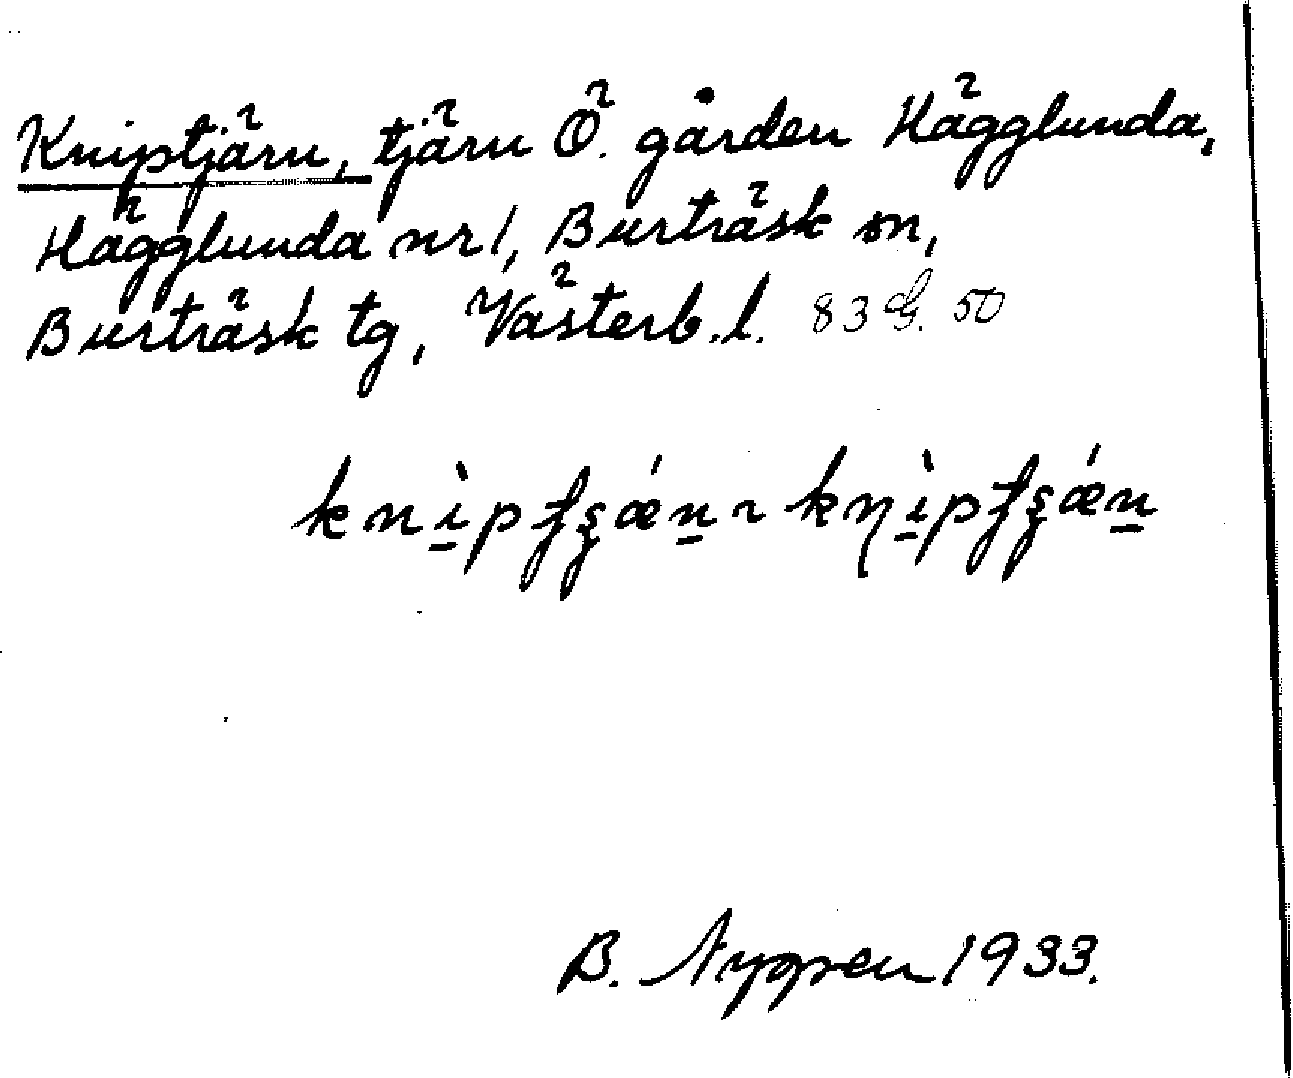 Kniptjärn, tjärn Ö. gården Hägglunda,
Hägglunda nr 1, Burträsk sn,
Burträsk tg, Västerb. l. 83 G. 50
B. Nygren 1933.